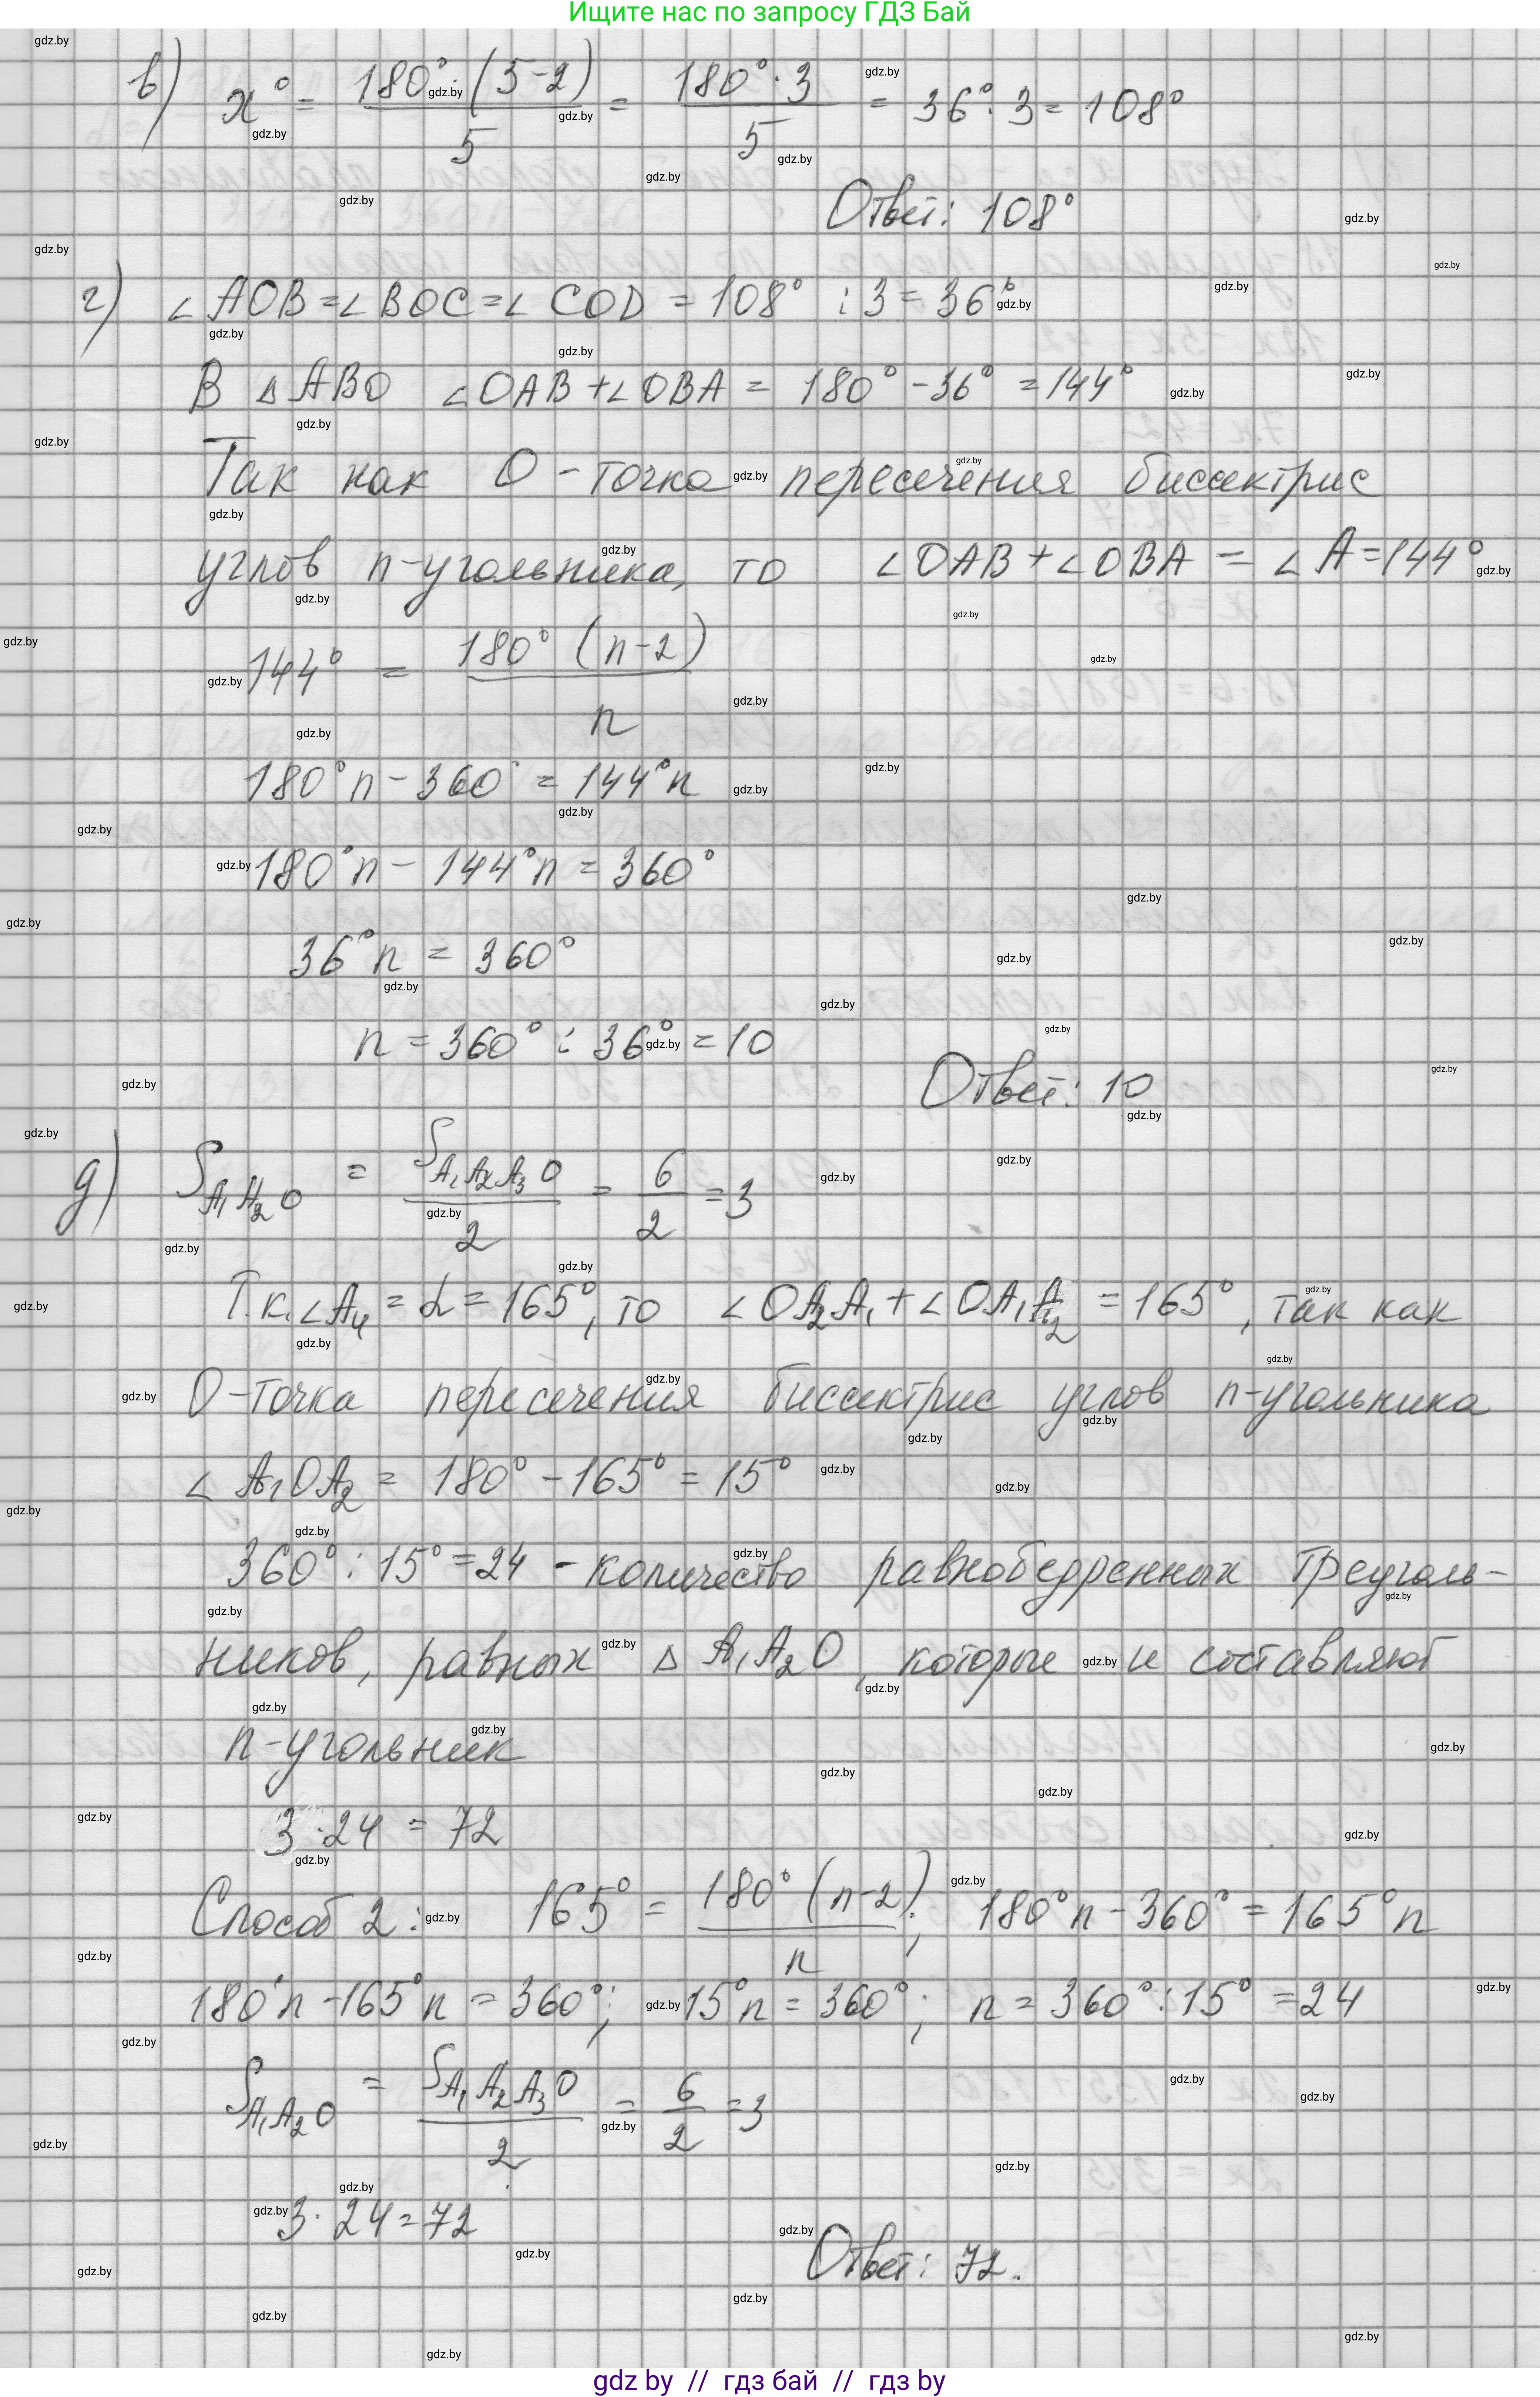 Ищите нас по запросу ГДЗ Бай
в) x° = 180°·(5-2)/5 = 180°·3/5 = 36°·3 = 108°
Ответ: 108°
г) ∠AOB = ∠BOC = ∠COD = 108° : 3 = 36°
В △ABO ∠OAB + ∠OBA = 180° - 36° = 144°
Так как O - точка пересечения биссектрис
углов n-угольника, то ∠OAB + ∠OBA = ∠A = 144°
144° = 180°(n-2)/n
180°n - 360° = 144°n
180°n - 144°n = 360°
36°n = 360°
n = 360° : 36° = 10
Ответ: 10
д) S A₁A₂O = S A₁A₂A₃O / 2 = 6/2 = 3
Т.к. ∠A₄ = α = 165°, то ∠OA₂A₁ + ∠OA₁A₂ = 165°, так как
O-точка пересечения биссектрис углов n-угольника
∠A₁OA₂ = 180° - 165° = 15°
360° : 15° = 24 - количество равнобедренных треуголь-
ников, равных △A₁A₂O, которые и составляют
n-угольник
3·24 = 72
Способ 2: 165° = 180°(n-2)/n; 180°n - 360° = 165°n
180°n - 165°n = 360°; 15°n = 360°; n = 360° : 15° = 24
S A₁A₂O = S A₁A₂A₃O / 2 = 6/2 = 3
3·24 = 72
Ответ: 72.
gdz by // гдз бай // gdz by